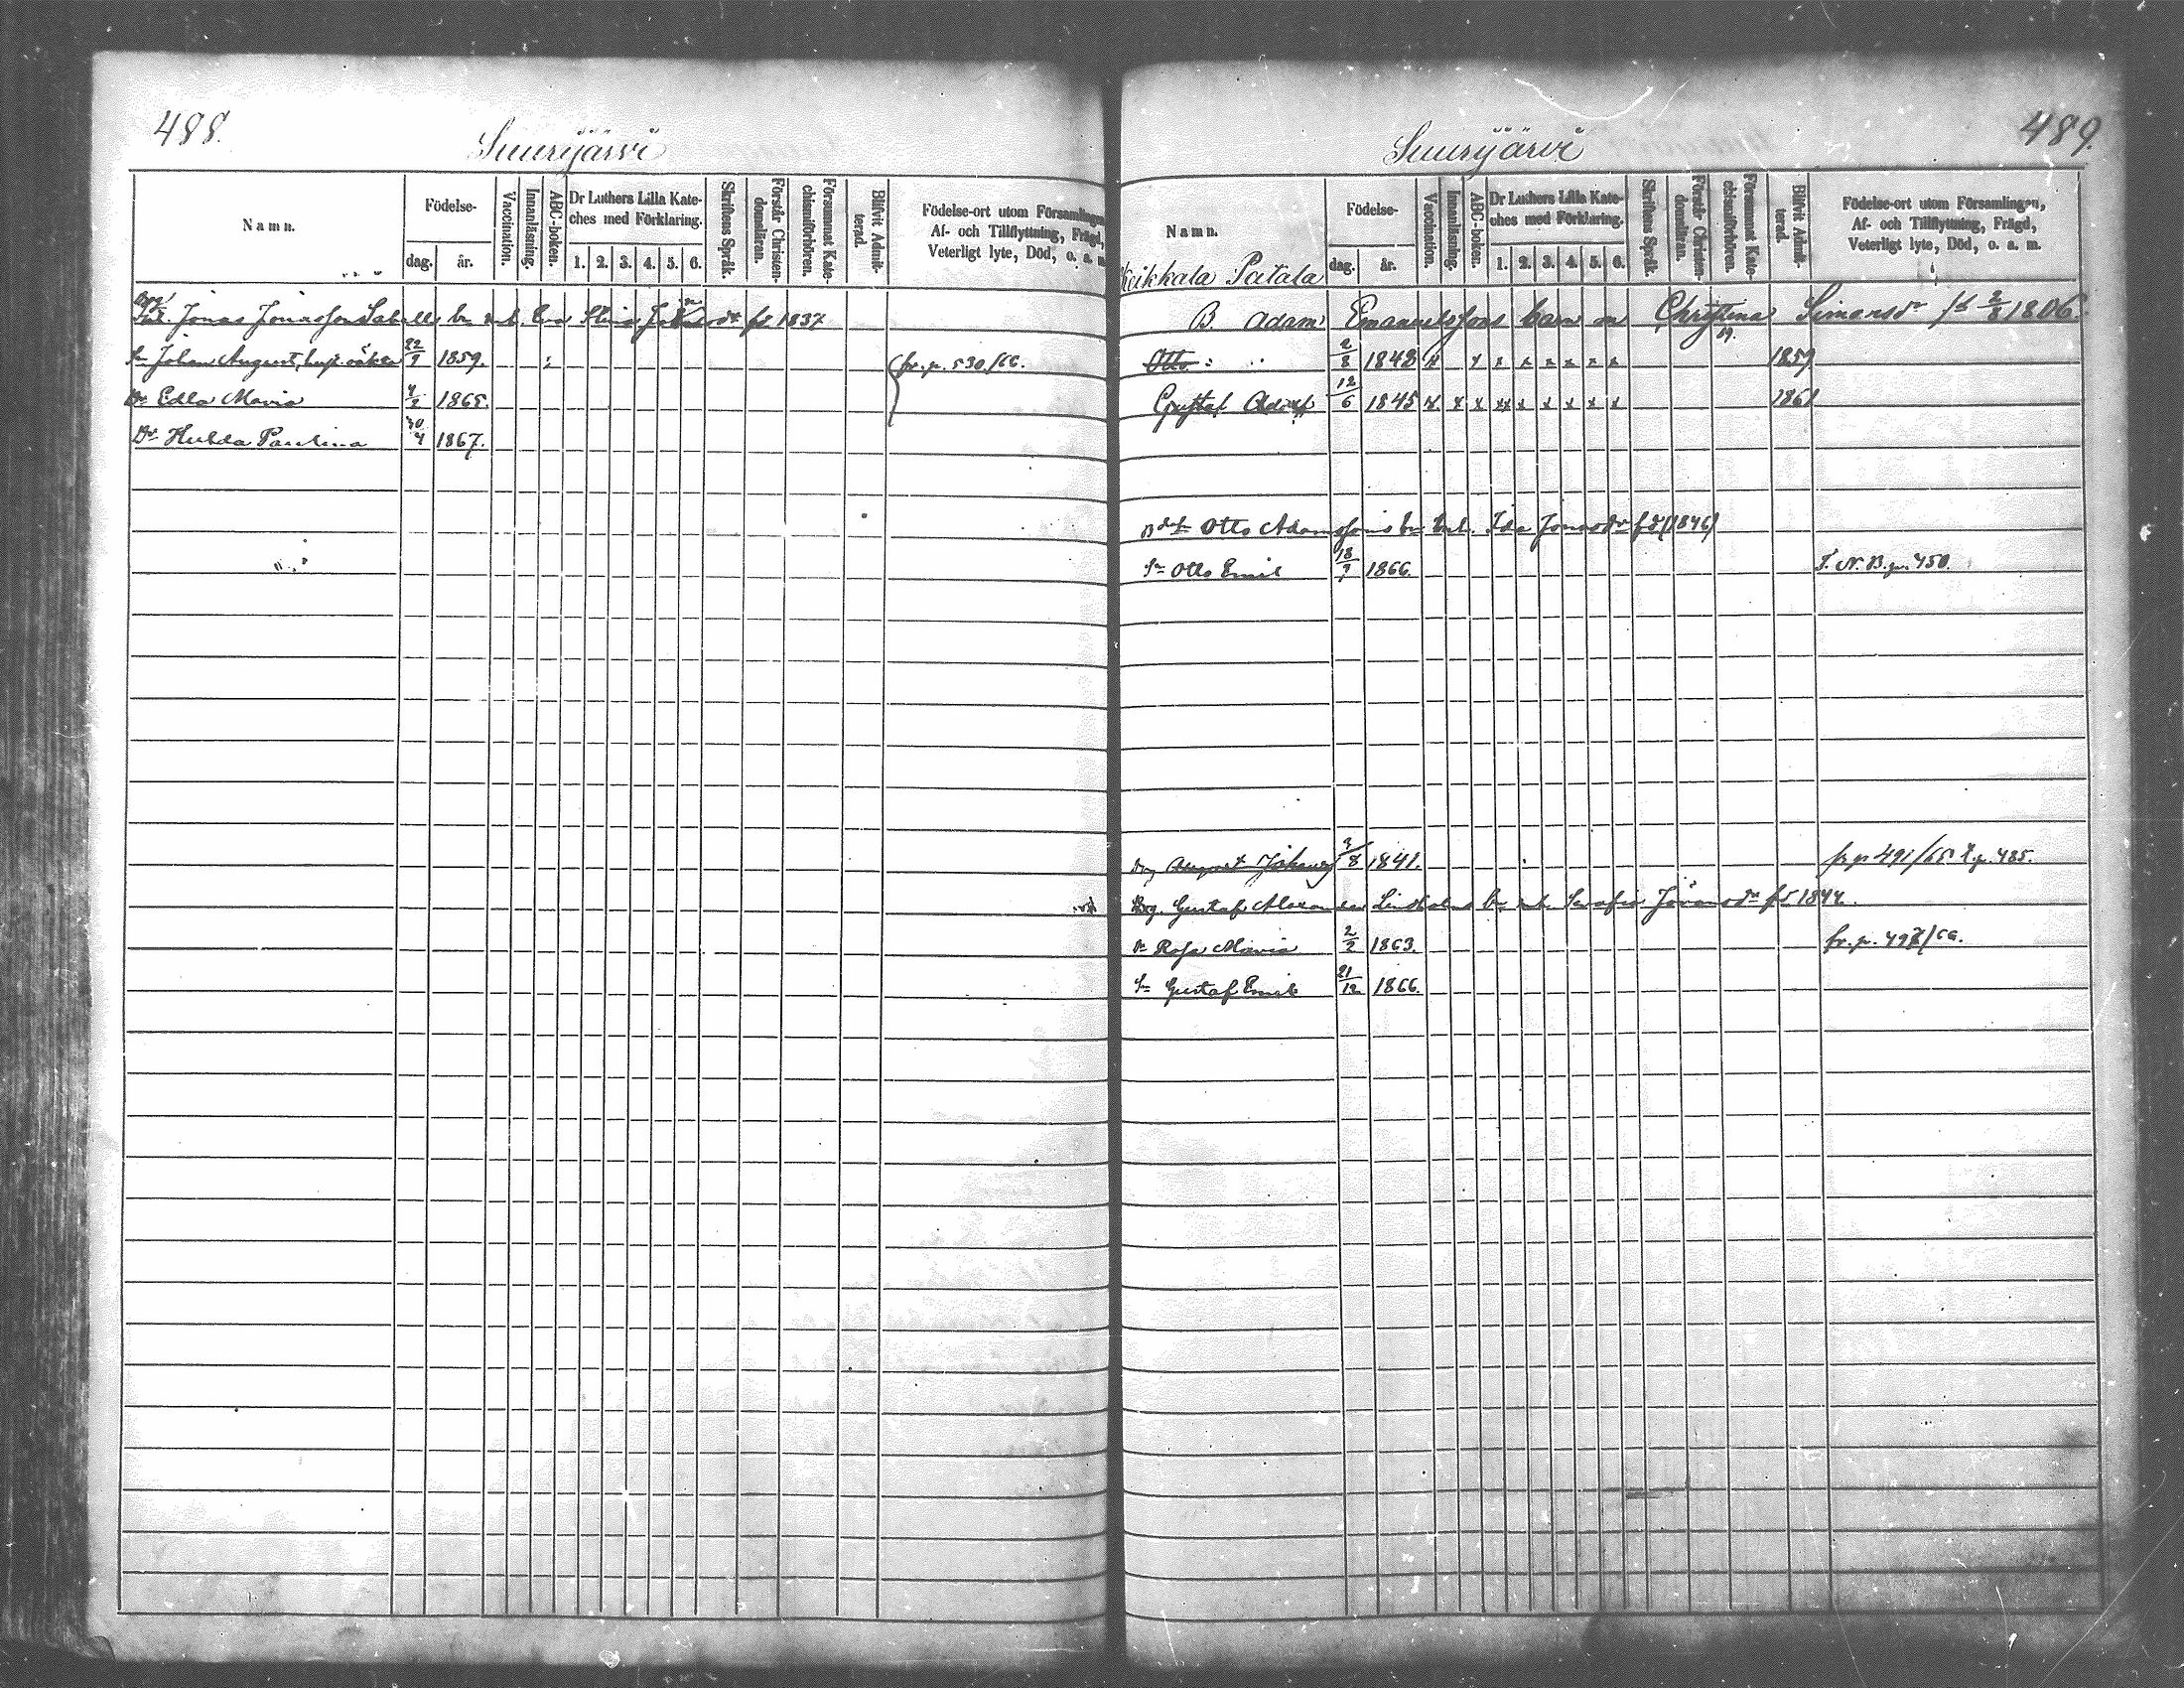 488.
Suurijärvi
Namn.
Födelse-
dag.
år.
Vaccination.
Innanläsning.
ABC-boken.
Dr Luthers Lilla Kate-
ches med Förklaring.
1. 2. 3. 4. 5. 6.
Skriftens Språk.
Förstår Christen-
domsläran.
Försummat Kate-
chismiförhören.
Blifvit Admit-
terad.
Födelse-ort utom Församlingen,
Af- och Tillflyttning, Frägd,
Veterligt lyte, Död, o. a. m.
Jonas Jonasson Sabell bn m. h. Eva Stina fd 1837
Sn Johan August 22/9 1859. fr. p. 530/66.
Dr Edla Maria 1865.
Dr Hulda Paulina 30/4 1867.
489.
Suurijärvi
Namn.
Födelse-
dag.
år.
Vaccination.
Innanläsning.
ABC-boken.
Dr Luthers Lilla Kate-
ches med Förklaring.
1. 2. 3. 4. 5. 6.
Skriftens Språk.
Förstår Christen-
domsläran.
Försummat Kate-
chismiförhören.
Blifvit Admit-
terad.
Födelse-ort utom Församlingen,
Af- och Tillflyttning, Frägd,
Veterligt lyte, Död, o. a. m.
Keikkala Patala
B. Adam Emanuelssons barn m Christina Simonsdr fd 2/8 1806.
Otto 2/8 1843 x x x x x x x x 1859
Gustaf Adolf 12/6 1845 x x x xx x x x x x 1861
Otto Adamssons bn m. h. Ida Jonasdr fd (1846)
Sn Otto Emil 18/7 1866. T. N. B. p. 450.
August Johansson 3/8 1841. fr p 491/65 T. p. 485.
Drg. Gustaf Alexander Lindholms bn m. h. Serafia Jöransdr fd 1844.
Dr Rosa Maria 2/2 1863. fr. p. 497/66.
Sn Gustaf Emil 21/12 1866.